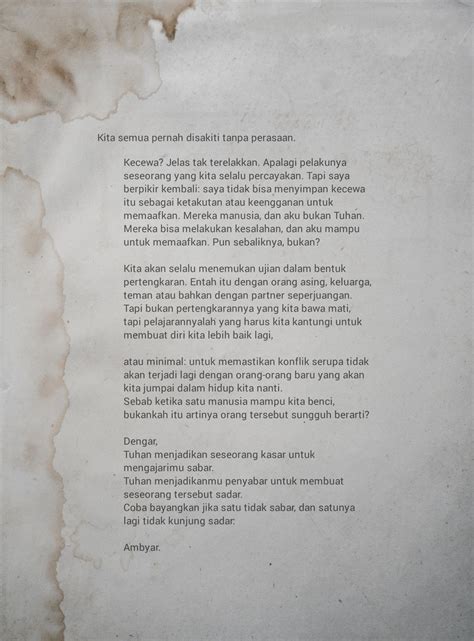 Kita semua pernah disakiti tanpa perasaan.
Kecewa? Jelas tak terelakkan. Apalagi pelakunya
seseorang yang kita selalu percayakan. Tapi saya
berpikir kembali: saya tidak bisa menyimpan kecewa
itu sebagai ketakutan atau keengganan untuk
memaafkan. Mereka manusia, dan aku bukan Tuhan.
Mereka bisa melakukan kesalahan, dan aku mampu
untuk memaafkan. Pun sebaliknya, bukan?
Kita akan selalu menemukan ujian dalam bentuk
pertengkaran. Entah itu dengan orang asing, keluarga,
teman atau bahkan dengan partner seperjuangan.
Tapi bukan pertengkarannya yang kita bawa mati,
tapi pelajarannyalah yang harus kita kantungi untuk
membuat diri kita lebih baik lagi,
atau minimal: untuk memastikan konflik serupa tidak
akan terjadi lagi dengan orang-orang baru yang akan
kita jumpai dalam hidup kita nanti.
Sebab ketika satu manusia mampu kita benci,
bukankah itu artinya orang tersebut sungguh berarti?
Dengar,
Tuhan menjadikan seseorang kasar untuk
mengajarimu sabar.
Tuhan menjadikanmu penyabar untuk membuat
seseorang tersebut sadar.
Coba bayangkan jika satu tidak sabar, dan satunya
lagi tidak kunjung sadar.
Ambyar.